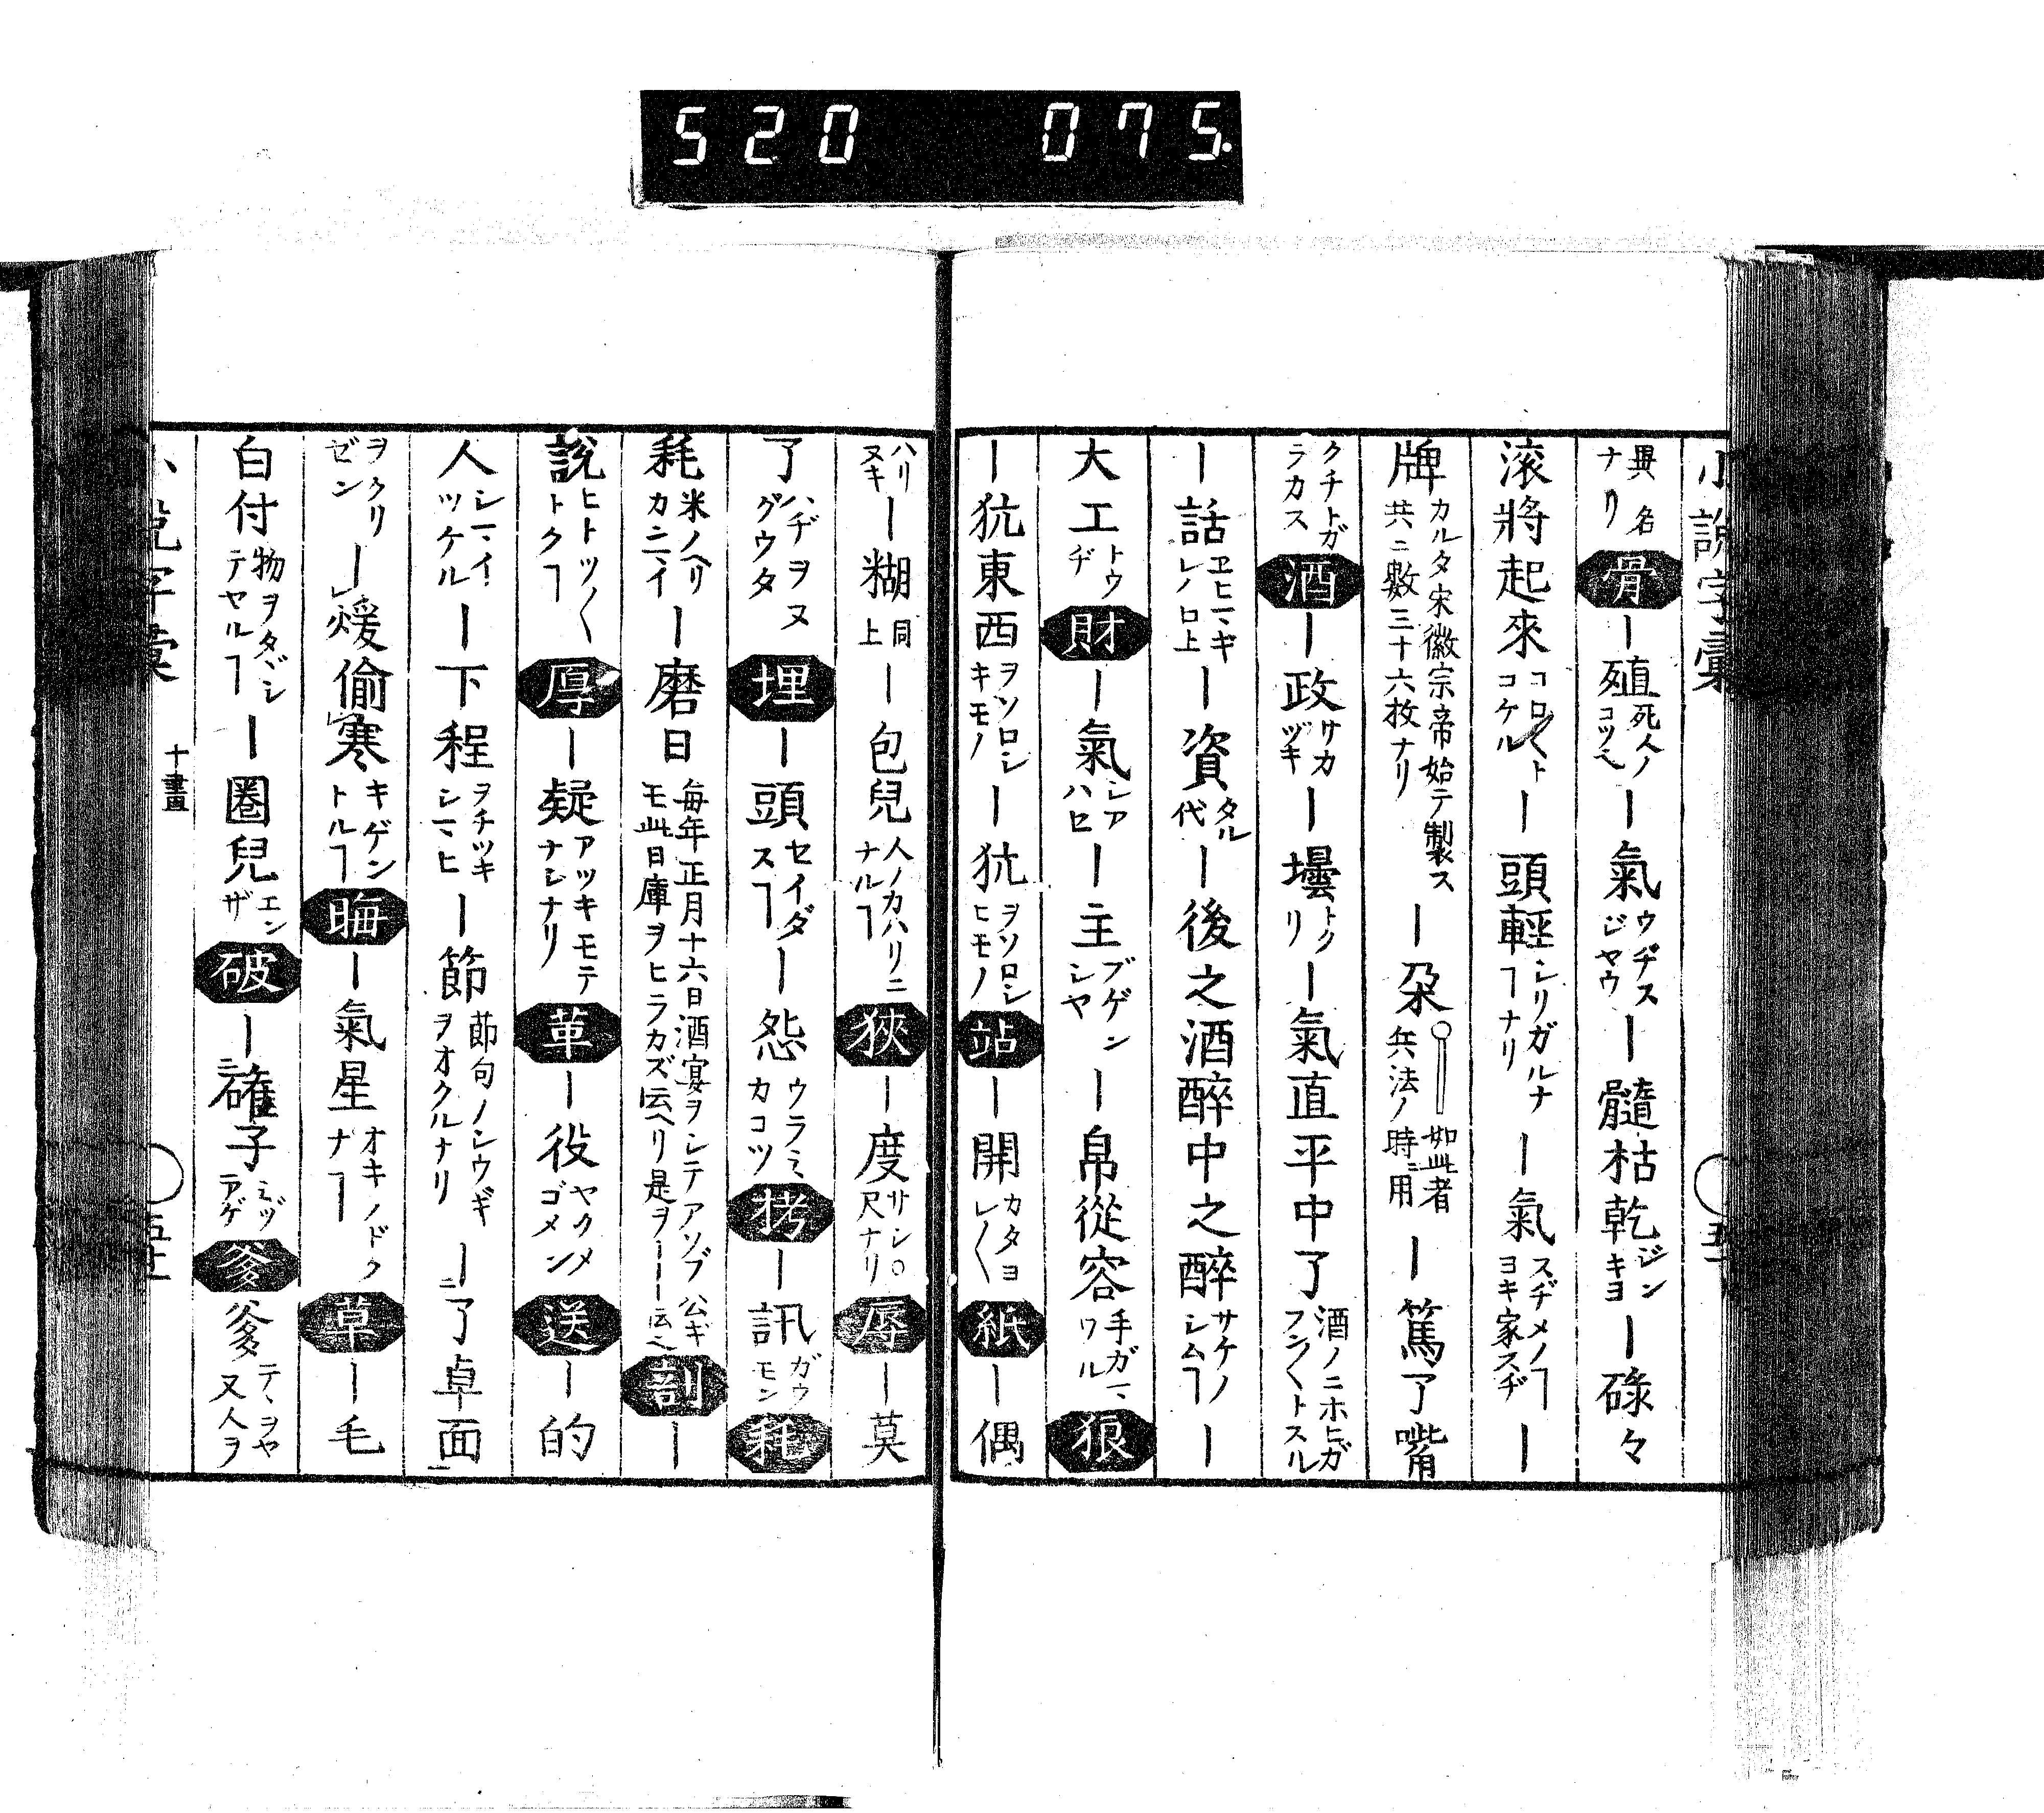 520 075.
小說字彙
異名ナリ 骨 ー殖 死人ノコツヘ ー氣 ウヂスジヤウ ー髓枯乾 ジンキヨ ー碌々
滚將起來 コロ〱トコケル ー頭輕 シリガルナヿナリ ー氣 スヂメノヿヨキ家スヂ ー
牌 カルタ宋徽宗帝始テ製ス共ニ數三十六枚ナリ ー朶 如此者兵法ノ時ニ用 ー篤了嘴
クチトガラカス 酒 ー政 サカヅキ ー壜 トクリ ー氣直平中了 酒ノニホヒガフン〱トスル
ー話 ヱヒマギレノ口上 ー資 タル代 ー後之酒醉中之醉 サケノシムヿ ー
大工 トウヂ 財 ー氣 シアハセ ー主 ブゲンシヤ ー帛從容 手ガマワル 狠
ー犺東西 ヲソロシキモノ ー犺 ヲソロシヒモノ 站 ー開 カタヨレ〱 紙 ー偶
ハリヌキ ー糊 同上 ー包兒 人ノカハリニナルヿ 狹 ー度 サシ尺ナリ 辱 ー莫
了 ハヂヲヌグウタ 埋 ー頭 セイダスヿ ー怨 ウラミカコツ 拷 ー訊 ガウモン 耗
耗 米ノヘリカニイ ー磨日 每年正月十六日酒宴ヲシテアソブ公ギモ此日庫ヲヒラカズ云ヘリ是ヲーー云ヘ 剖 ー
說 ヒトツ〱トクヿ 厚 ー疑 アツキモテナシナリ 革 ー役 ヤクメゴメン 送 ー的
人 シマイツケル ー下程 ヲチツキシマヒ ー節 節句ノシウギヲオクルナリ ー了卓面
ヲクリゼン ー煖偷寒 キゲントルヿ 晦 ー氣星 オキノドクナヿ 草 ー毛
白付 物ヲタヾシテヤルヿ ー圈兒 エンザ 破 ー確子 ミヅアゲ 爹 爹 テヽヲヤ又人ヲ
小說字彙 十畫